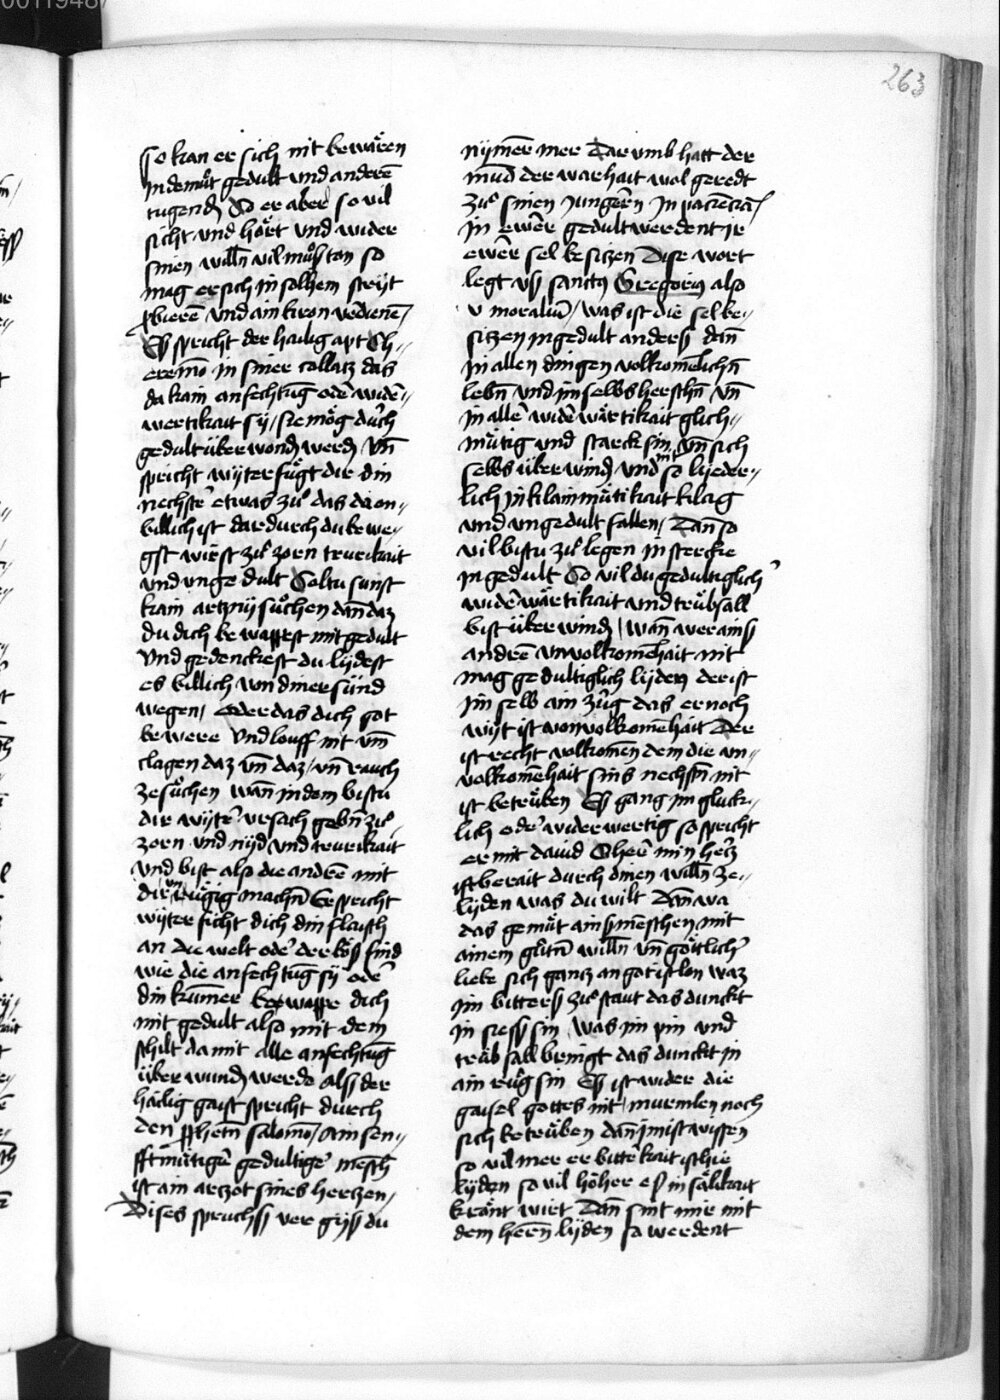 0011948
263
so kan er sich nit bewären
In demůt gedult vnd anderē
tugendē So er aber so vil
sicht vnd hört vnd wider
sinen willn vil můß ton so
mag er sich in solhem streyt
vnd ain kron verdienē
Eß spricht der hailig apt Ch-
eremō in siner collatz das
da kain anfechtūg oder wider-
wertikait sy / sie mög durch
gedult überwondē werdē vn̄
spricht wyter fügt dir din
nechster etwas zů das da on-
billich ist dardurch du bewe-
gst wirst zů zorn trurikait
vnd vngedult Soltu sunst
kain artzny sůchen dan̄ daz
du dich bewappest mit gedult
Vnd gedenckest du lydest
es billich von diner sünd
wegen / oder das dich got
bewere Vnd louff nit vm̄
clagen daz vn̄ daz / vn̄ rauch
zesůchen wan̄ in dem bistu
dir wyter vrsach gebn̄ zů
zorn vnd nyd vnd trurikait
Vnd bist also die andrē mit
dir vnrüǧig machn̄ Er spricht
wyter ficht dich din flaisch
an die welt oder der böß find
wie die anfechtūg sy oder
din kum̄er bewappe dich
mit gedult also mit dem
schilt da mit alle anfechtūg
überwundē werde alß der
hailig gaist spricht durch
den ꝓphetn̄ salomō / Ain sen-
fftmütiger gedultiger mēsch
ist ain artzot sines hertzen /
Dises spruchß vergyß du
nym̄er mer Dar vmb hatt der
mūd der warhait wol geredt
zů sinen Jungern In paciencia /
In ewer gedult werdent ir
ewer sel besitzen Dise wort
legt vß sanctus Gregorius also
v moraliū / was ist die sel be-
sitzen in gedult anders dan̄
In allen dingen volkomēlichn̄
lebn̄ vnd im selbs herschn̄ vn̄
in allē widerwärtikait glich-
mütig vnd starck sin vn̄ sich
selbs überwindē vnd nit so lyeder-
lich in klainmütikait klag
vnd vngedult fallen / Dan̄ so
vil bistu zůlegen in stercke
In gedult So vil du gedultiglich
widerwärtikait vnd trübsall
bist überwindē / wan̄ wer ainß
andrē vnvolkomēhait nit
mag gedultiglich lydem der ist
im selb ain züg das er noch
wyt ist von volkomēhait Der
ist recht volkomen dem die vn-
volkomēhait sins nechstn̄ nit
ist betrüben Eß gang im glück-
lich oder widerwertig so spricht
er mit dauid O herr min hertz
ist berait durch dinen willn ze-
lyden was du wilt Dan̄ wa
das gemüt ainß menschen mit
ainem gůtn̄ willn vn̄ götlicher
liebe sich gantz an got ist lon waz
im bitterß zů staut das dunckt
in sieß sin was im pin vnd
trübsall bringt das dunckt in
ain rüǧ sin Eß ist wider die
gaisel gottes nit murmlen noch
sich betrüben dan̄ im ist wissen
so vil mer er bitterkait ist hie
lyden so vil höher eß in sälikait
krönt wirt Dan̄ sint mir mit
dem herrn lyden so werdent